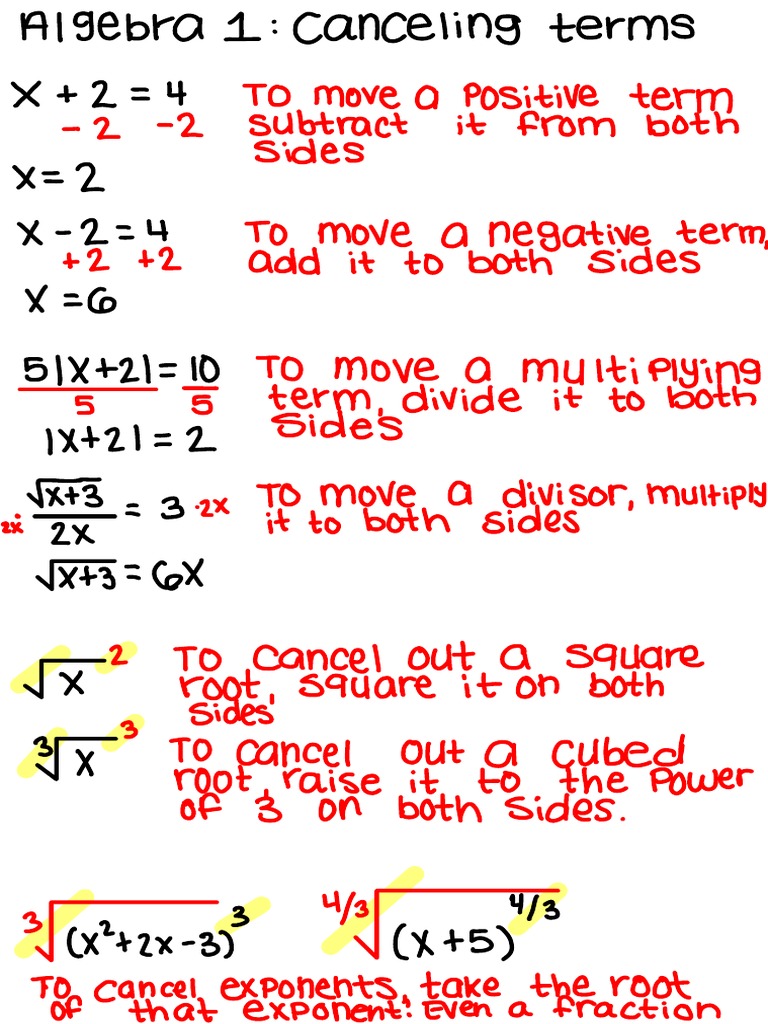 Algebra 1: Canceling terms
x + 2 = 4
- 2 -2
To move a positive term
subtract it from both
sides
x = 2
x - 2 = 4
+2 +2
To move a negative term,
add it to both sides
x = 6
5|x+2| = 10
5 5
To move a multiplying
term, divide it to both
sides
|x+2| = 2
√x+3
2x· 2x = 3 ·2x
To move a divisor, multiply
it to both sides
√x+3 = 6x
√x 2
To cancel out a square
root, square it on both
sides
3√x 3
To cancel out a cubed
root, raise it to the power
of 3 on both sides.
3√(x²+2x-3)³
4/3√(x+5)4/3
To cancel exponents, take the root
of that exponent! Even a fraction